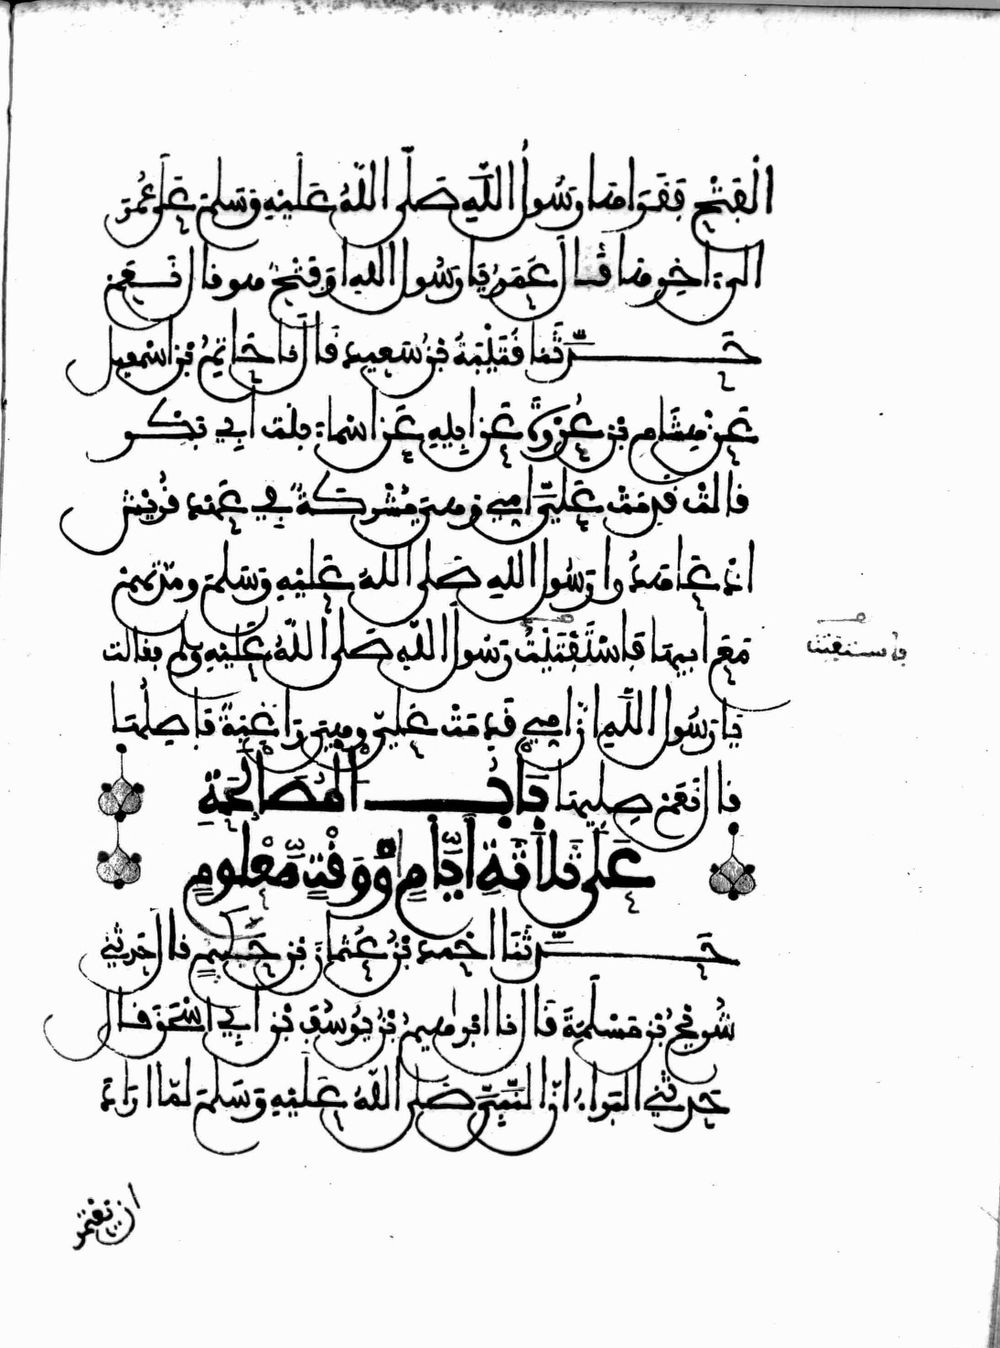 الْفَتْحِ فَقَرَأَهَا رَسُولُ اللَّهِ صَلَّى اللَّهُ عَلَيْهِ وَسَلَّمَ عَلَى عُمَرَ
إِلَى آخِرِهَا قَالَ عُمَرُ يَا رَسُولَ اللَّهِ أَوَفَتْحٌ هُوَ قَالَ نَعَمْ
حَدَّثَنَا قُتَيْبَةُ بْنُ سَعِيدٍ قَالَ نَا حَاتِمُ بْنُ اسْمَعِيلَ
عَنْ هِشَامِ بْنِ عُرْوَةَ عَنْ أَبِيهِ عَنْ أَسْمَاءَ بِنْتِ أَبِي بَكْرٍ
قَالَتْ قَدِمَتْ عَلَيَّ أُمِّي وَهِيَ مُشْرِكَةٌ فِي عَهْدِ قُرَيْشٍ
إِذْ عَاهَدُوا رَسُولَ اللَّهِ صَلَّى اللَّهُ عَلَيْهِ وَسَلَّمَ وَمُدَّتِهِمْ
مَعَ أَبِيهَا فَاسْتَفْتَيْتُ رَسُولَ اللَّهِ صَلَّى اللَّهُ عَلَيْهِ وَسَلَّمَ فَقَالَتْ
فاستفتت
يَا رَسُولَ اللَّهِ إِنَّ أُمِّي قَدِمَتْ عَلَيَّ وَهِيَ رَاغِبَةٌ فَأَصِلُهَا
قَالَ نَعَمْ صِلِيهَا بَابُ الْمُصَالَحَةِ
عَلَى ثَلَاثَةِ أَيَّامٍ أَوْ وَقْتٍ مَّعْلُومٍ
حَدَّثَنَا أَحْمَدُ بْنُ عُثْمَانَ بْنِ حَكِيمٍ قَالَ حَدَّثَنِي
شُرَيْحُ بْنُ مَسْلَمَةَ قَالَ نَا ابْرَاهِيمُ بْنُ يُوسُفَ بْنِ أَبِي اسْحَقَ قَالَ
حَدَّثَنِي الْبَرَاءُ أَنَّ النَّبِيَّ صَلَّى اللَّهُ عَلَيْهِ وَسَلَّمَ لَمَّا أَرَادَ
ان يعتمر